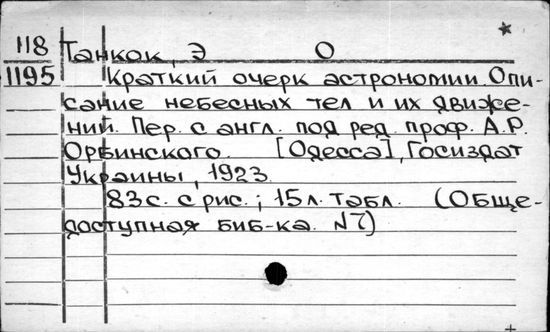 118 Танкок, Э О
1195 Краткий очерк астрономии Опи-
сание небесных тел и их движе-
ний. Пер. с англ. под ред. проф. А.Р.
Орбинского. [Одесса], Госиздат
Украины, 1923.
83 с. с рис.; 15 л. табл. (Обще-
доступная биб-ка. N7)